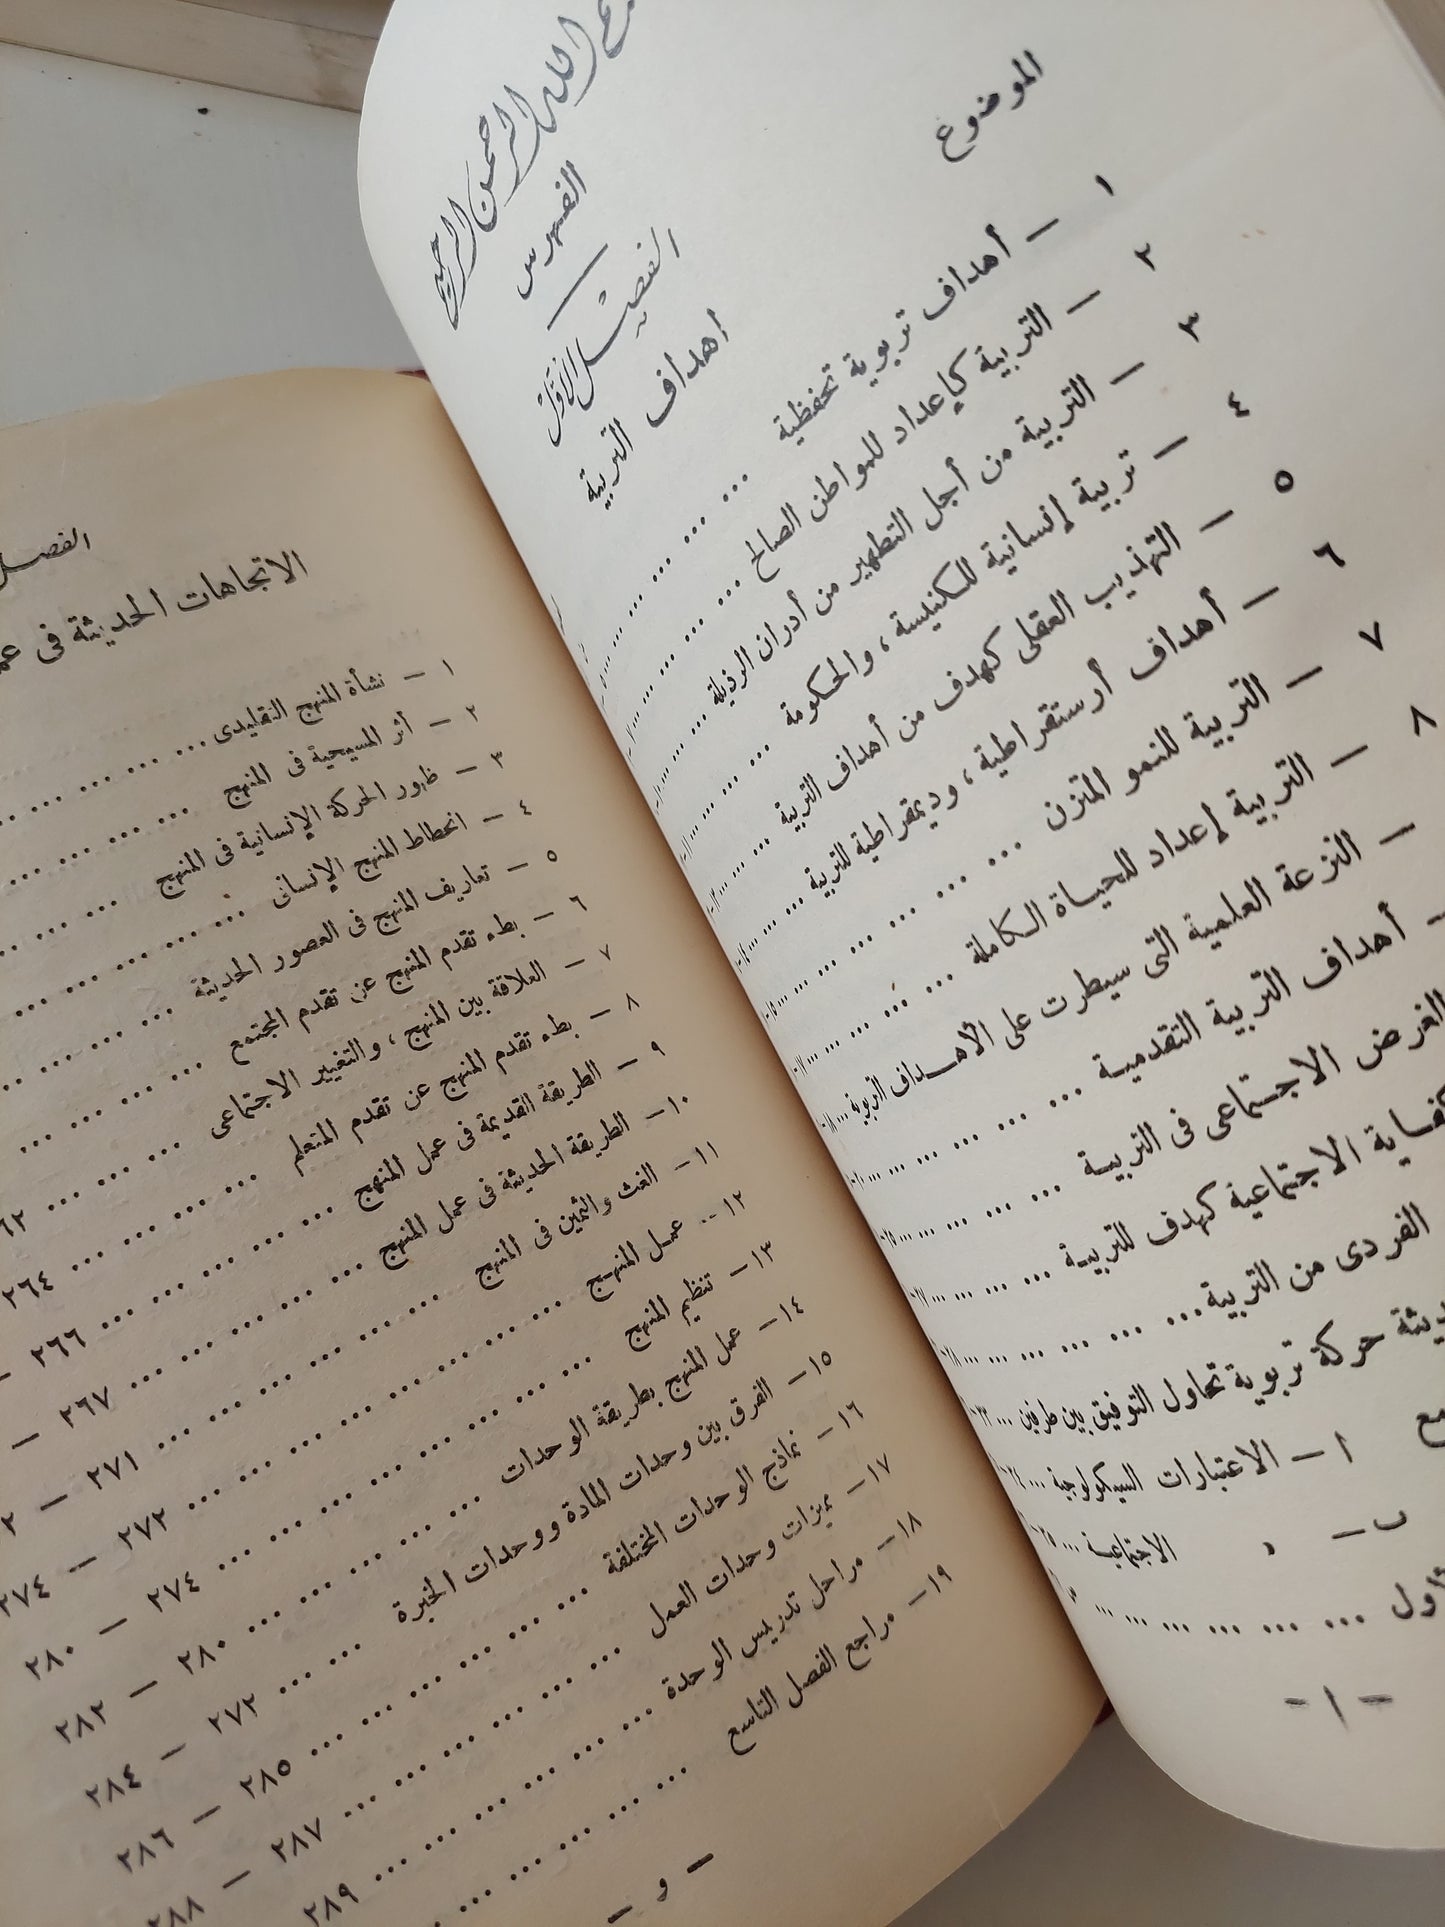 الله الرحمن الرحيم
الفهرس
الفصل الأول
أهداف التربية
الموضوع
١ — أهداف تربوية تحفظية ... ... ... ... ...
٢ — التربية كإعداد للمواطن الصالح ... ... ... ...
٣ — التربية من أجل التطهير من أدران الرذيلة ... ...
٤ — تربية إنسانية للكنيسة ، والحكومة ... ... ...
٥ — التهذيب العقلى كهدف من أهداف التربية ... ...
٦ — أهداف أرستقراطية ، وديمقراطية للتربية ... ...
٧ — التربية للنمو المتزن ... ... ... ... ...
٨ — التربية إعداد للحياة الكاملة ... ... ... ...
— النزعة العلمية التى سيطرت على الأهداف التربوية ...
— أهداف التربية التقدمية ... ... ... ... ...
الغرض الاجتماعى فى التربية ... ... ... ...
الاجتماعية كهدف للتربية ... ... ... ...
الفردى من التربية ... ... ... ... ...
حركة تربوية تحاول التوفيق بين طرفين ...
ا — الاعتبارات السيكولوجية ...
ب — » الاجتماعية ...
... ... ... ... ...
— ١ —
الفصل
الاتجاهات الحديثة فى
١ — نشأة المنهج التقليدى ... ... ... ...
٢ — أثر المسيحية فى المنهج ... ... ... ...
٣ — ظهور الحركة الإنسانية فى المنهج ... ... ...
٤ — انحطاط المنهج الإنسانى ... ... ... ...
٥ — تعاريف المنهج فى العصور الحديثة ... ... ...
٦ — بطء تقدم المنهج عن تقدم المجتمع ... ... ...
٧ — العلاقة بين المنهج ، والتغيير الاجتماعى ... ... ...
٨ — بطء تقدم المنهج عن تقدم المتعلم ... ... ... ٢٦٤
٩ — الطريقة القديمة فى عمل المنهج ... ... ... ٢٦٦ —
١٠ — الطريقة الحديثة فى عمل المنهج ... ... ... ٢٦٧ —
١١ — الغث والثمين فى المنهج ... ... ... ٢٧١ —
١٢ — عمل المنهج ... ... ... ... ٢٧٢ — ٢٧٤
١٣ — تنظيم المنهج ... ... ... ... ٢٧٤ — ٢٨٠
١٤ — عمل المنهج بطريقة الوحدات ... ... ... ٢٨٠ — ٢٨٢
١٥ — الفرق بين وحدات المادة ووحدات الخبرة ... ... ٢٧٢ — ٢٨٤
١٦ — نماذج الوحدات المختلفة ... ... ... ٢٨٥ — ٢٨٦
١٧ — ميزات وحدات العمل ... ... ... ٢٨٧ — ٢٨٨
١٨ — مراحل تدريس الوحدة ... ... ... ٢٨٩
١٩ — مراجع الفصل التاسع ... ... ...
— و —